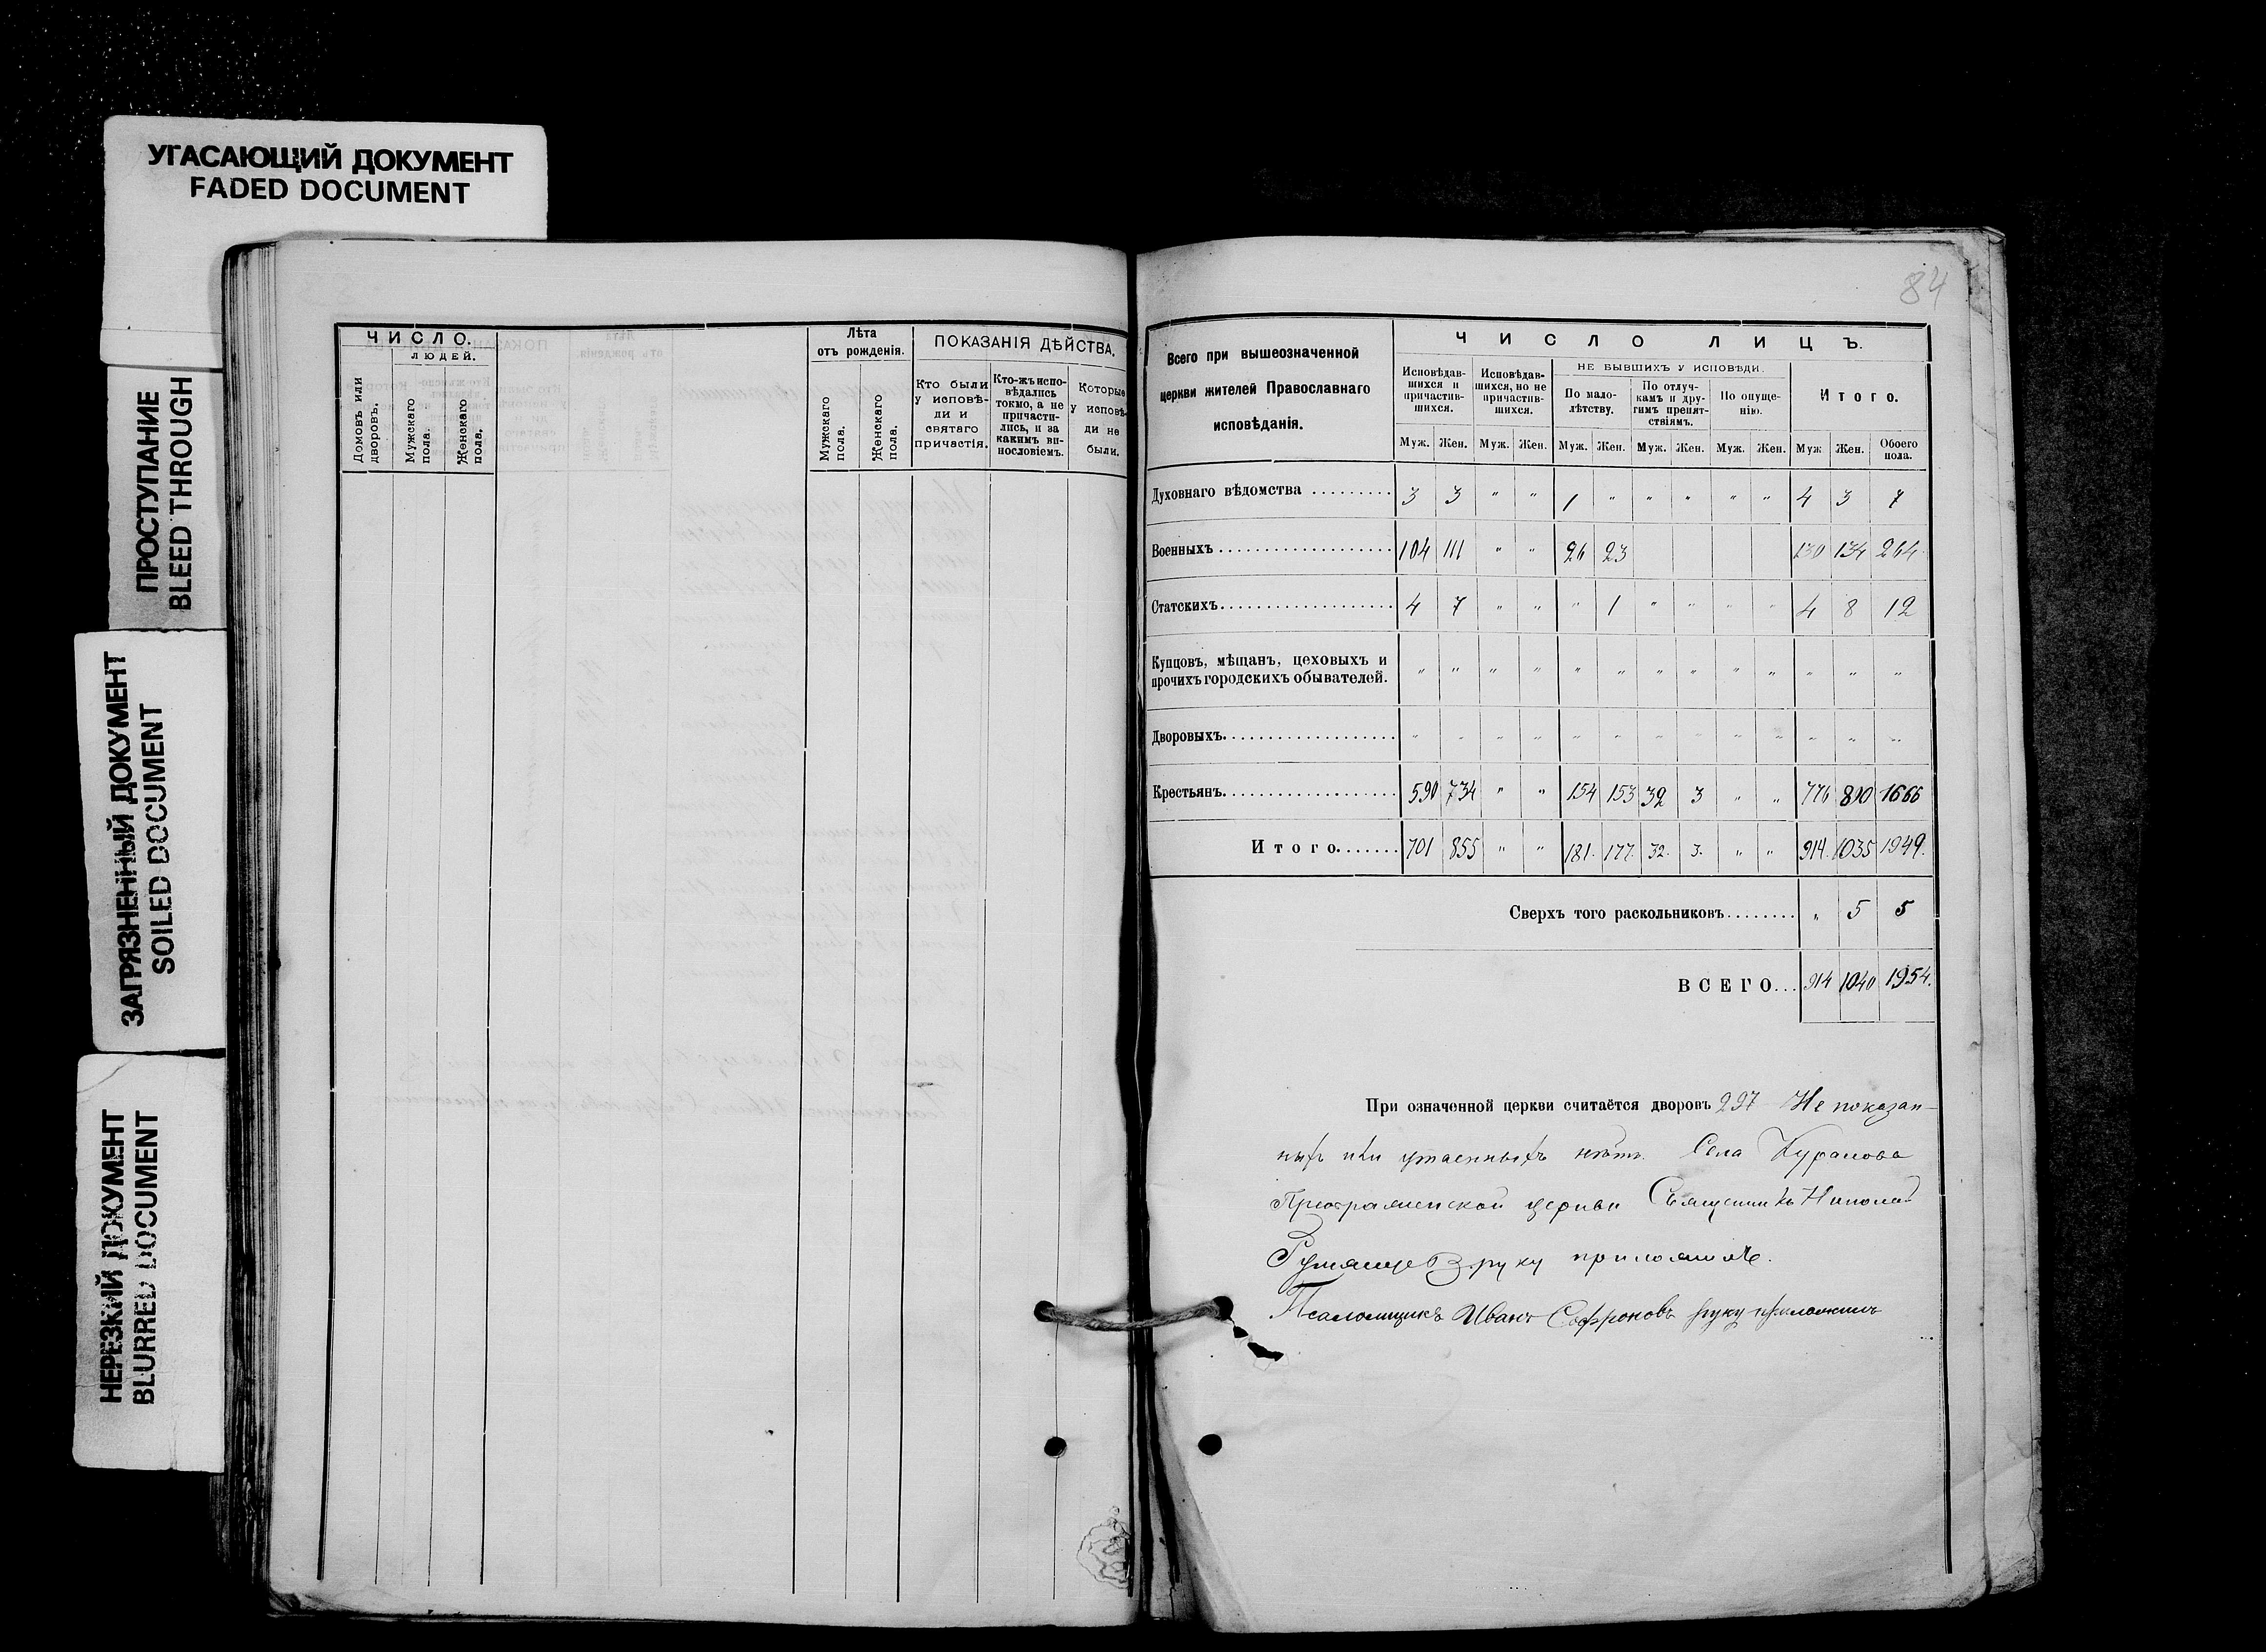 УГАСАЮЩИЙ ДОКУМЕНТ
FADED DOCUMENT
ПРОСТУПАНИЕ
BLEED THROUGH
ЗАГРЯЗНЕННЫЙ ДОКУМЕНТ
SOILED DOCUMENT
НЕРЕЗКИЙ ДОКУМЕНТ
BLURRED DOCUMENT
ЧИСЛО.
ЛЮДЕЙ.
Домовъ или дворовъ.
Мужскаго пола.
Женскаго пола.
Лѣта
отъ рожденія.
Мужскаго пола.
Женскаго пола.
ПОКАЗАНІЯ ДѢЙСТВА.
Кто были
у исповѣ-
ди и
святаго
причастія.
Кто-жъ испо-
вѣдались
токмо, а не
причасти-
лись, и за
какимъ ви-
нословіемъ.
Которые
у исповѣ-
ди не
были.
84
Всего при вышеозначенной
церкви жителей Православнаго
исповѣданія.
ЧИСЛО ЛИЦЪ.
Исповѣдав-
шихся и
причастив-
шихся.
Исповѣдав-
шихся, но не
причастив-
шихся.
НЕ БЫВШИХЪ У ИСПОВѢДИ.
По мало-
лѣтству.
По отлуч-
камъ и дру-
гимъ препят-
ствіямъ.
По опуще-
нію.
Итого.
Муж. Жен. Муж. Жен. Муж. Жен. Муж. Жен. Муж. Жен. Муж Жен. Обоего пола.
Духовнаго вѣдомства ......... 3 3 " " 1 " " " " " 4 3 7
Военныхъ ................... 104 111 " " 26 23 130 134 264
Статскихъ................... 4 7 " " " 1 " " " " 4 8 12
Купцовъ, мѣщанъ, цеховыхъ и
прочихъ городскихъ обывателей. " " " " " " " " " " " " "
Дворовыхъ................... " " " " " " " " " " " " "
Крестьянъ................... 590 734 " " 154 153 32 3 " " 776 890 1666
Итого....... 701 855 " " 181. 177. 32. 3. " " 914. 1035 1949.
Сверхъ того раскольниковъ........ " 5 5
ВСЕГО... 914 1040 1954.
При означенной церкви считаётся дворовъ 297 Не показан-
ныхъ или утаенныхъ нѣтъ. Села
церкви Священникъ Николай
Румянцевъ руку приложилъ.
Псаломщикъ Иванъ Софроновъ руку приложилъ